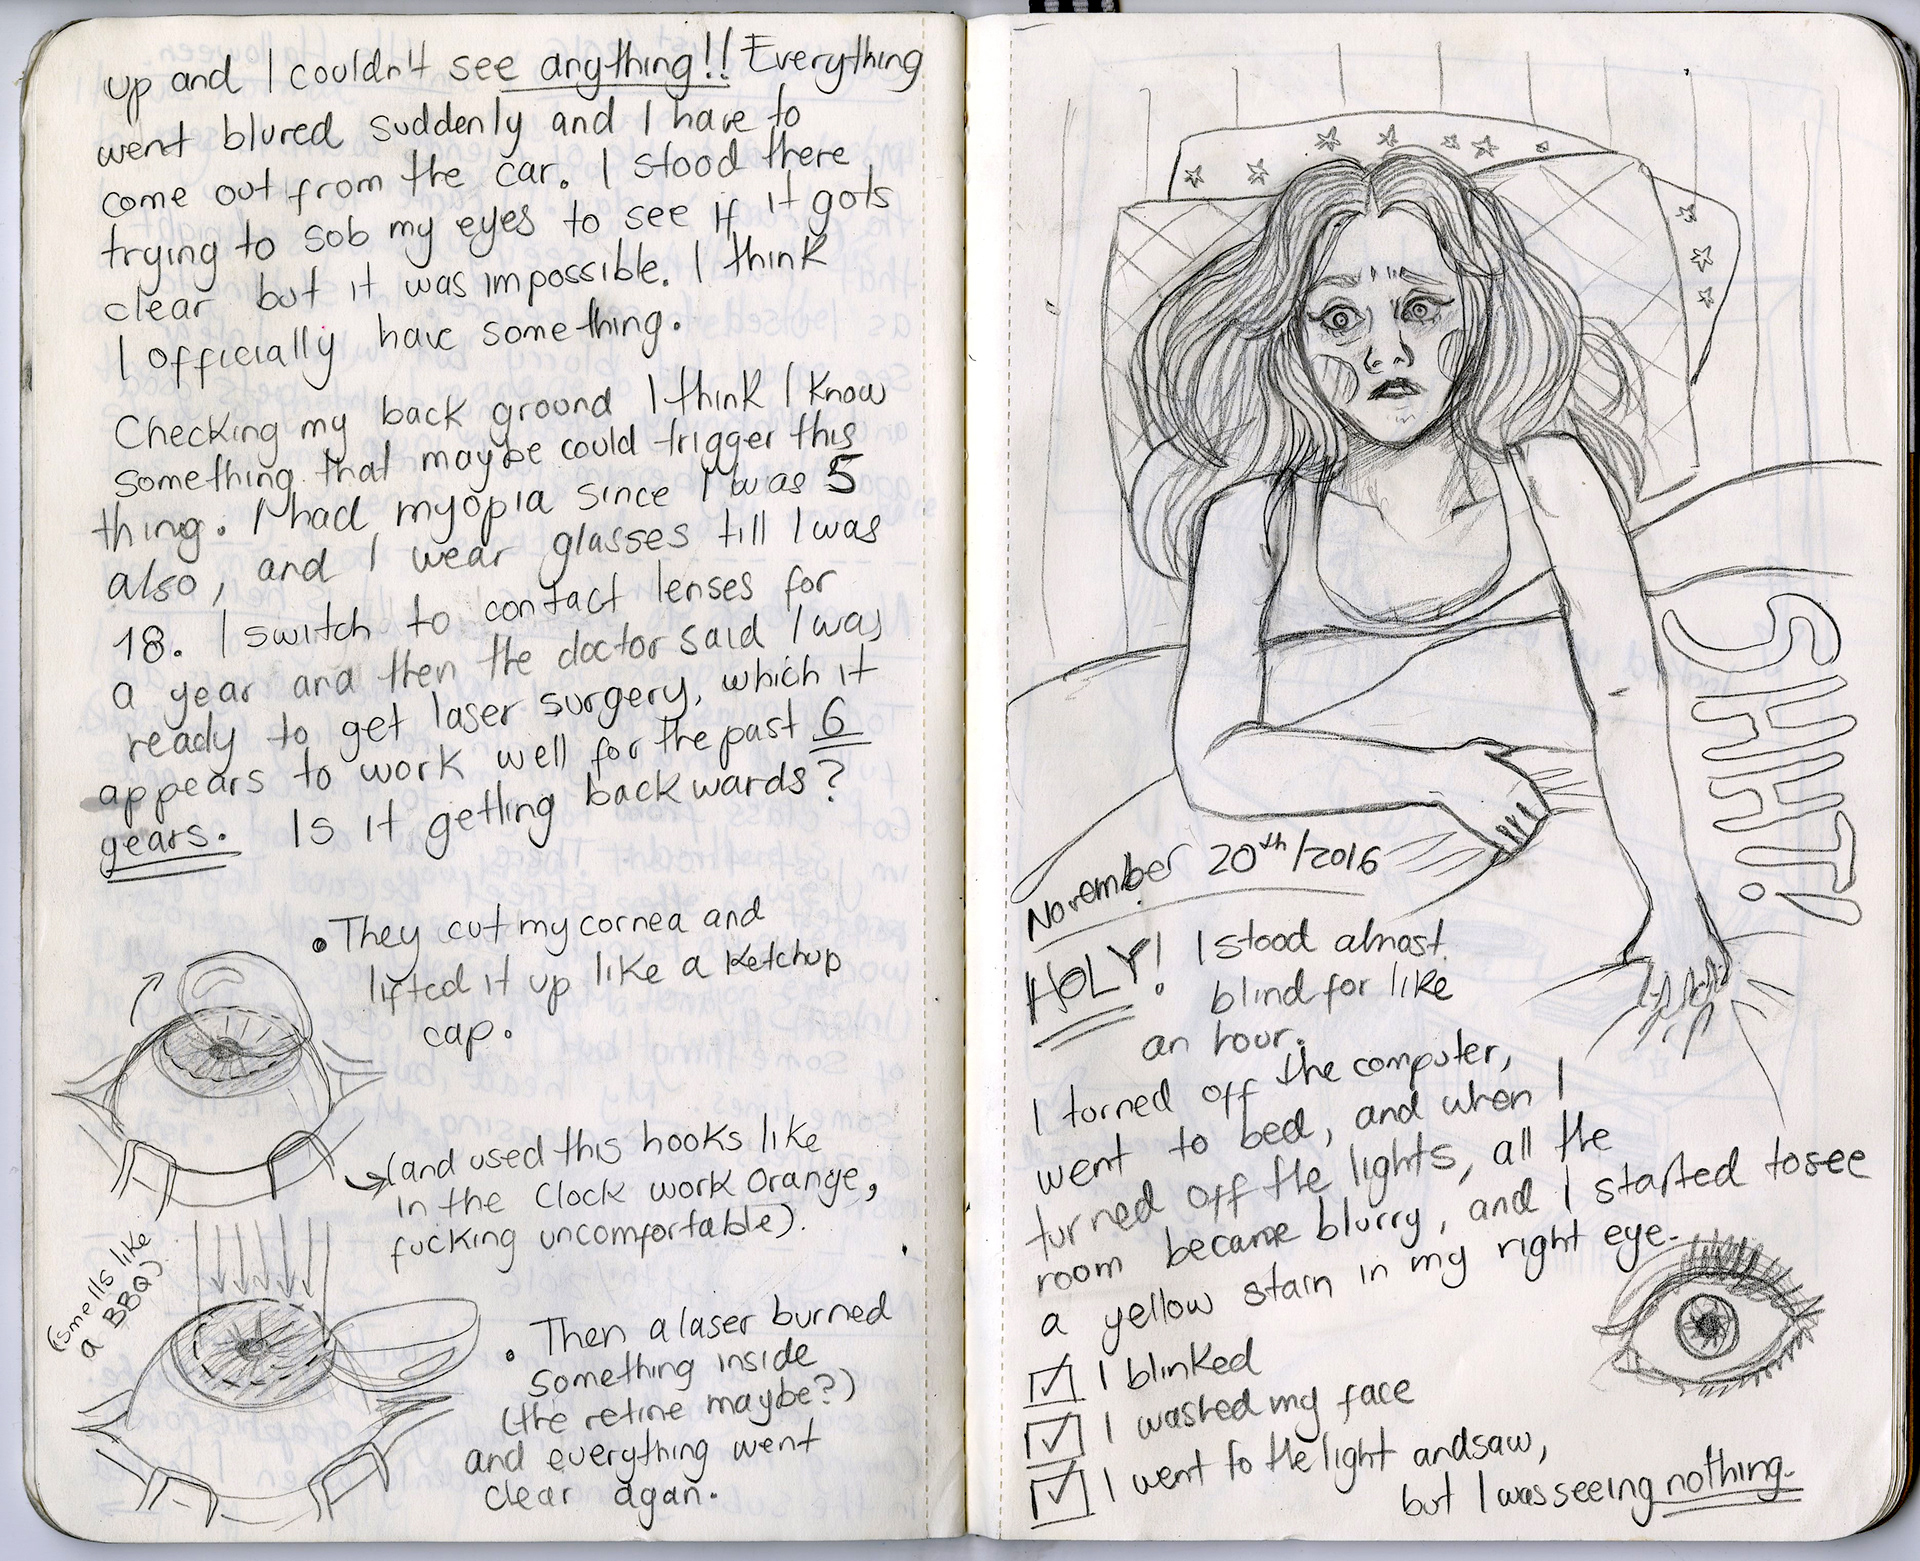 up and I couldn't see anything!! Everything
went blured suddenly and I have to
come out from the car. I stood there
trying to sob my eyes to see if it gots
clear but it was impossible. I think
I officially have something.
Checking my back ground I think I know
something that maybe could trigger this
thing. I had myopia since I was 5
also, and I wear glasses till I was
18. I switch to contact lenses for
a year and then the doctor said I was
ready to get laser surgery, which it
appears to work well for the past 6
years. Is it getting back wards?
• They cut my cornea and
lifted it up like a Ketchup
cap.
(and used this hooks like
in the Clock work Orange,
fucking uncomfortable).
(smells like
a BBQ)
• Then a laser burned
something inside
(the retine maybe?)
and everything went
clear agan.
SHHIT!
November 20th/2016
HOLY! I stood almost
blind for like
an hour.
I turned off the computer,
went to bed, and when I
turned off the lights, all the
room became blurry, and I started to see
a yellow stain in my right eye.
I blinked
I washed my face
I went to the light and saw,
but I was seeing nothing.